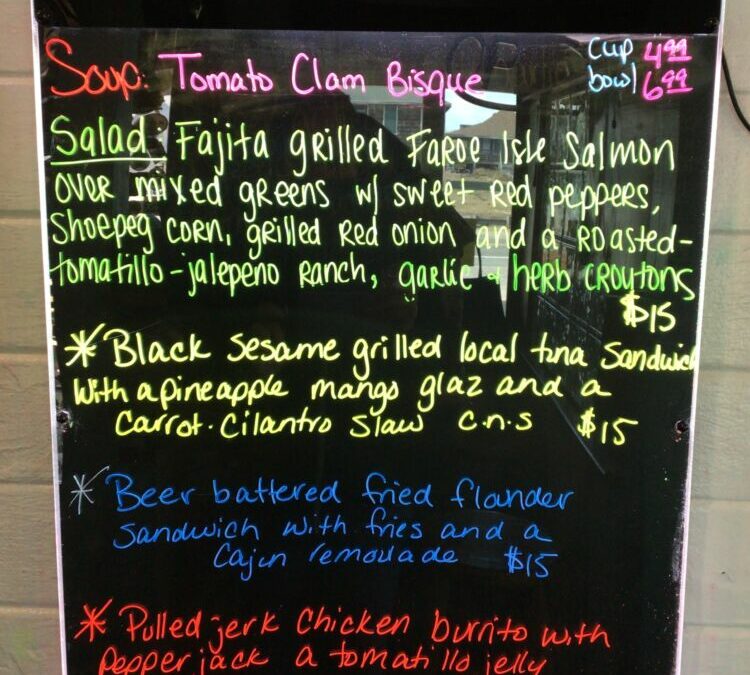 Soup: Tomato Clam Bisque cup 4.99
bowl 6.99
Salad: Fajita grilled Faroe Isle Salmon
over mixed greens w/ sweet red peppers,
Shoepeg corn, grilled red onion and a roasted-
tomatillo-jalepeno ranch, garlic + herb croytons
$15
* Black Sesame grilled local tuna Sandwich
with a pineapple mango glaz and a
Carrot-Cilantro Slaw c.n.s $15
* Beer battered fried flounder
Sandwich with fries and a
Cajun remoulade $15
* Pulled jerk chicken burrito with
Pepperjack a tomatillo jelly